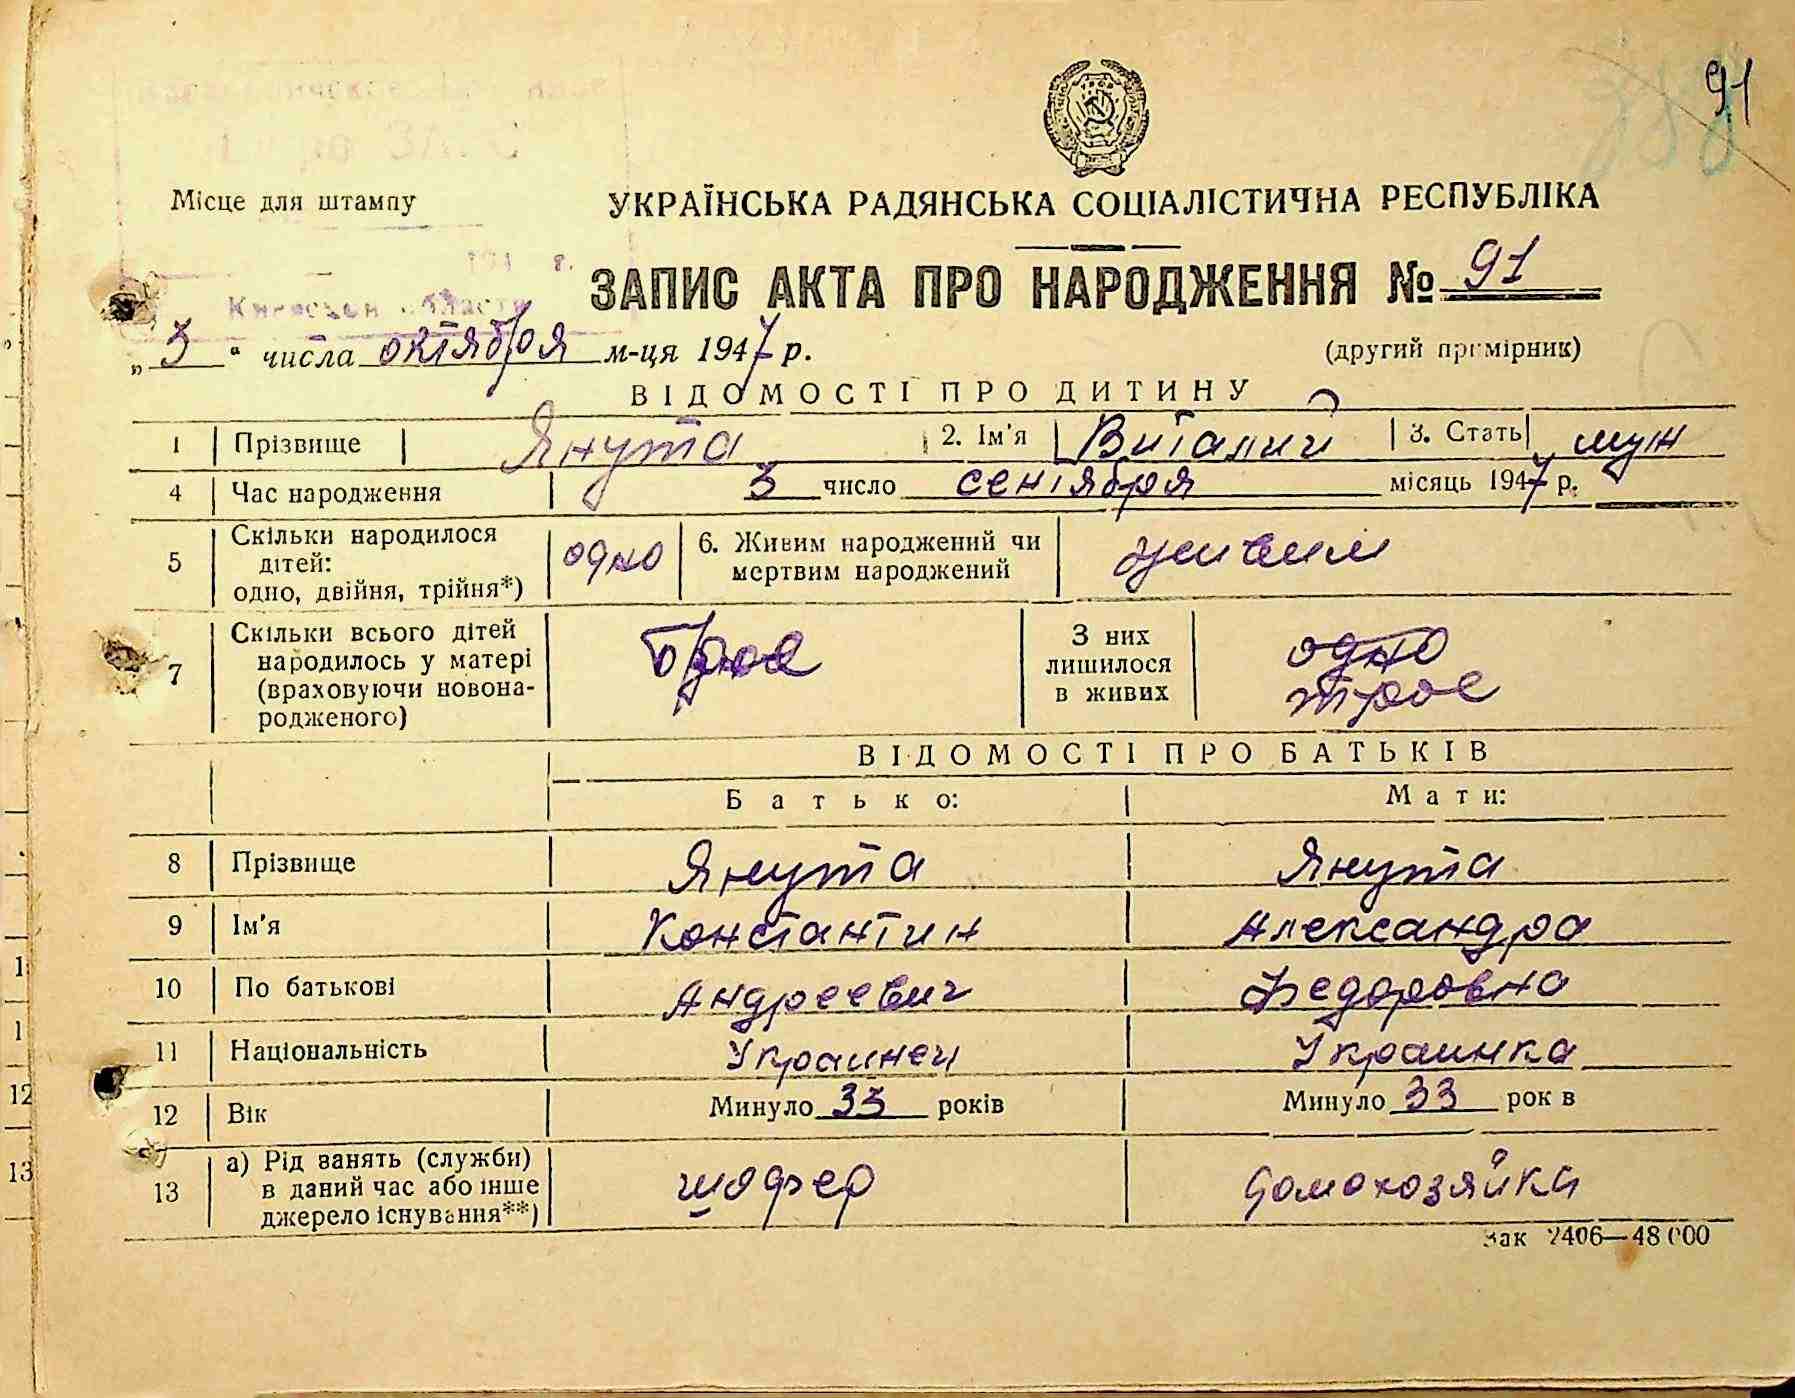 91
Місце для штампу
УКРАЇНСЬКА РАДЯНСЬКА СОЦІАЛІСТИЧНА РЕСПУБЛІКА
194 г.
ЗАПИС АКТА ПРО НАРОДЖЕННЯ № 91
Киевской области
„3“ числа октября м-ця 1947 р.
(другий примірник)
ВІДОМОСТІ ПРО ДИТИНУ
1 Прізвище Янута 2. Ім'я Виталий 3. Стать муж
4 Час народження 3 число сентября місяць 1947 р.
5 Скільки народилося дітей: одно, двійня, трійня*) одно 6. Живим народжений чи мертвим народжений живым
7 Скільки всього дітей народилось у матері (враховуючи новонародженого) трое З них лишилося в живих одно трое
ВІДОМОСТІ ПРО БАТЬКІВ
Батько: Мати:
8 Прізвище Янута Янута
9 Ім'я Константин Александра
10 По батькові Андреевич Федоровна
11 Національність Украинец Украинка
12 Вік Минуло 33 років Минуло 33 років
13 а) Рід занять (служби) в даний час або інше джерело існування**) шофер домохозяйка
Зак 2406—48 000
12
13